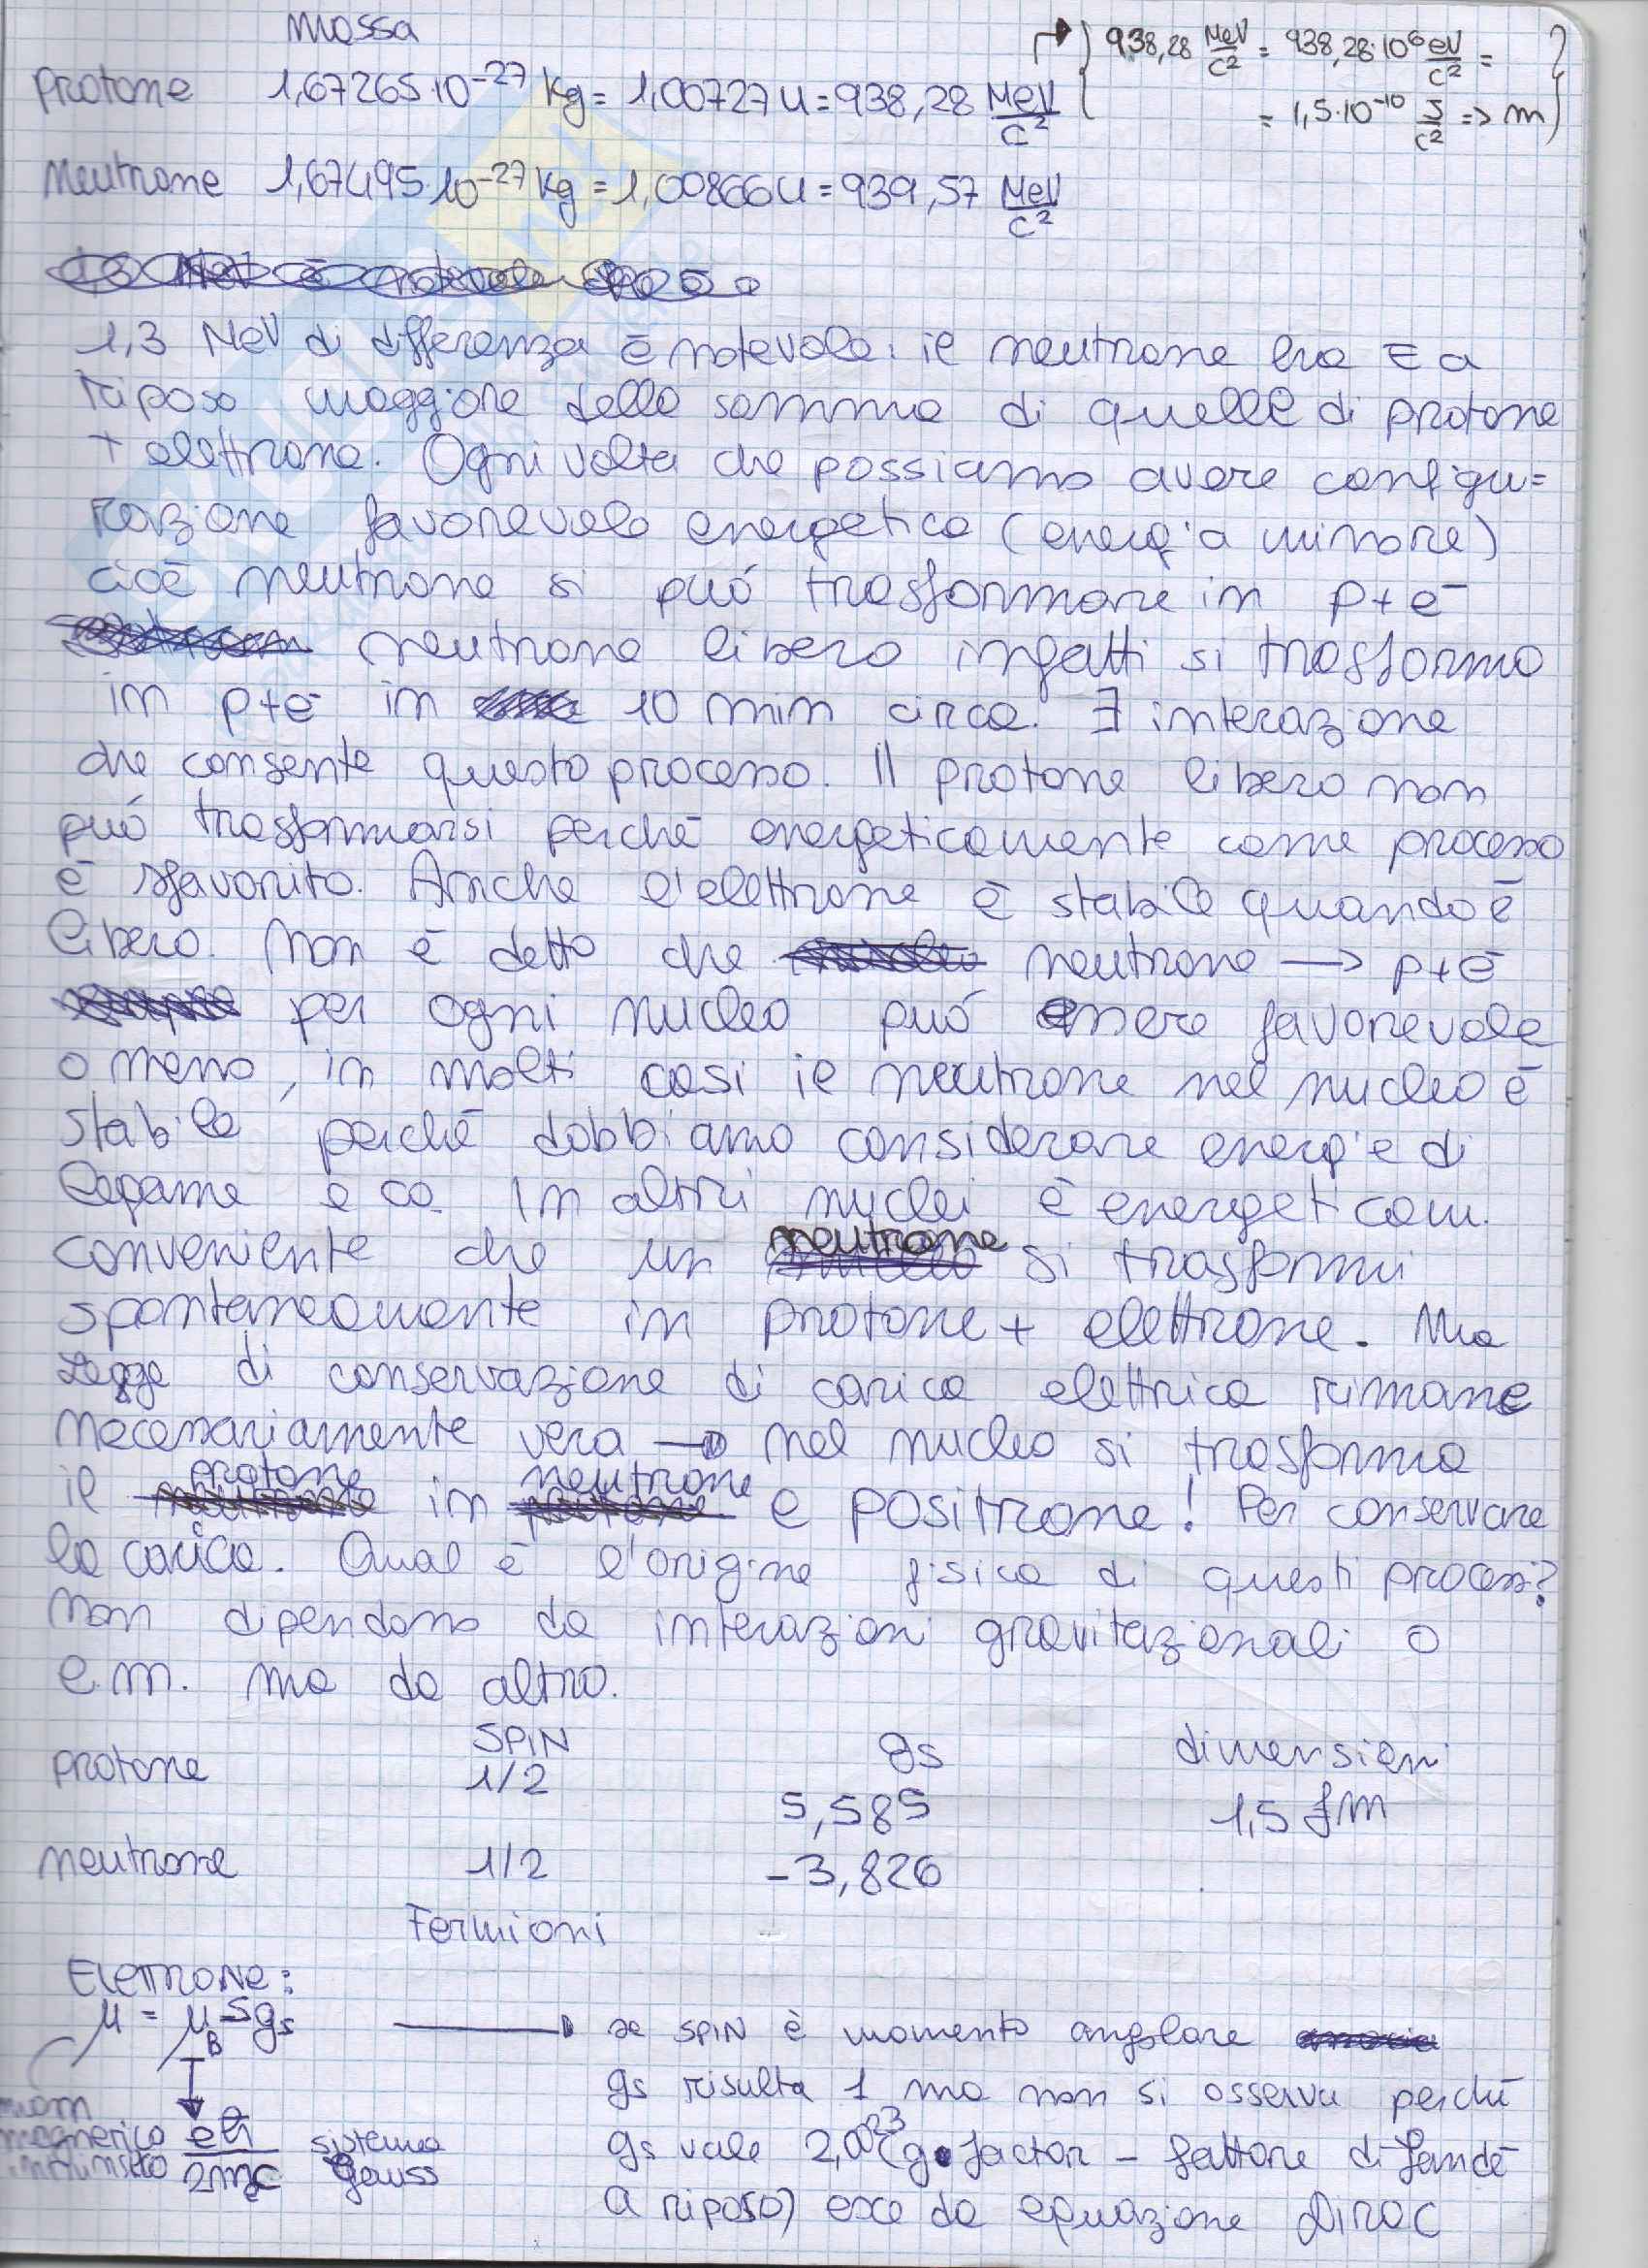 Massa
Protone 1,67265·10⁻²⁷ Kg = 1,00727 u = 938,28 MeV/c²
{ 938,28 MeV/c² = 938,28·10⁶ eV/c² =
= 1,5·10⁻¹⁰ J/c² => m }
Neutrone 1,67495·10⁻²⁷ Kg = 1,00866 u = 939,57 MeV/c²
1,3 MeV di differenza è notevole: il neutrone ha E a
riposo maggiore della somma di quelle di protone
+ elettrone. Ogni volta che possiamo avere configu=
razione favorevole energetica (energia minore)
cioè neutrone si può trasformare in p+e⁻
neutrone libero infatti si trasforma
in p+e⁻ in 10 min circa. ∃ interazione
che consente questo processo. Il protone libero non
può trasformarsi perché energeticamente come processo
è sfavorito. Anche l'elettrone è stabile quando è
libero. Non è detto che neutrone → p+e⁻
per ogni nucleo può essere favorevole
o meno, in molti casi il neutrone nel nucleo è
stabile perché dobbiamo considerare energie di
legame e co. In altri nuclei è energeticam.
conveniente che un neutrone si trasformi
spontaneamente in protone + elettrone. Ma
legge di conservazione di carica elettrica rimane
necessariamente vera → nel nucleo si trasforma
il protone in neutrone e positrone! Per conservare
la carica. Qual è l'origine fisica di questi processi?
Non dipendono da interazioni gravitazionali o
e.m. ma da altro.
SPIN gs dimensioni
protone 1/2 5,585 1,5 fm
neutrone 1/2 -3,826
Fermioni
Elettrone:
μ = μ_B S gs → se SPIN è momento angolare
gs risulta 1 ma non si osserva perché
mom
magnetico
intrinseco
eħ/2mₑc sistema
gauss
gs vale 2,0023 (g factor - fattore di Landè
a riposo) esce da equazione DIRAC